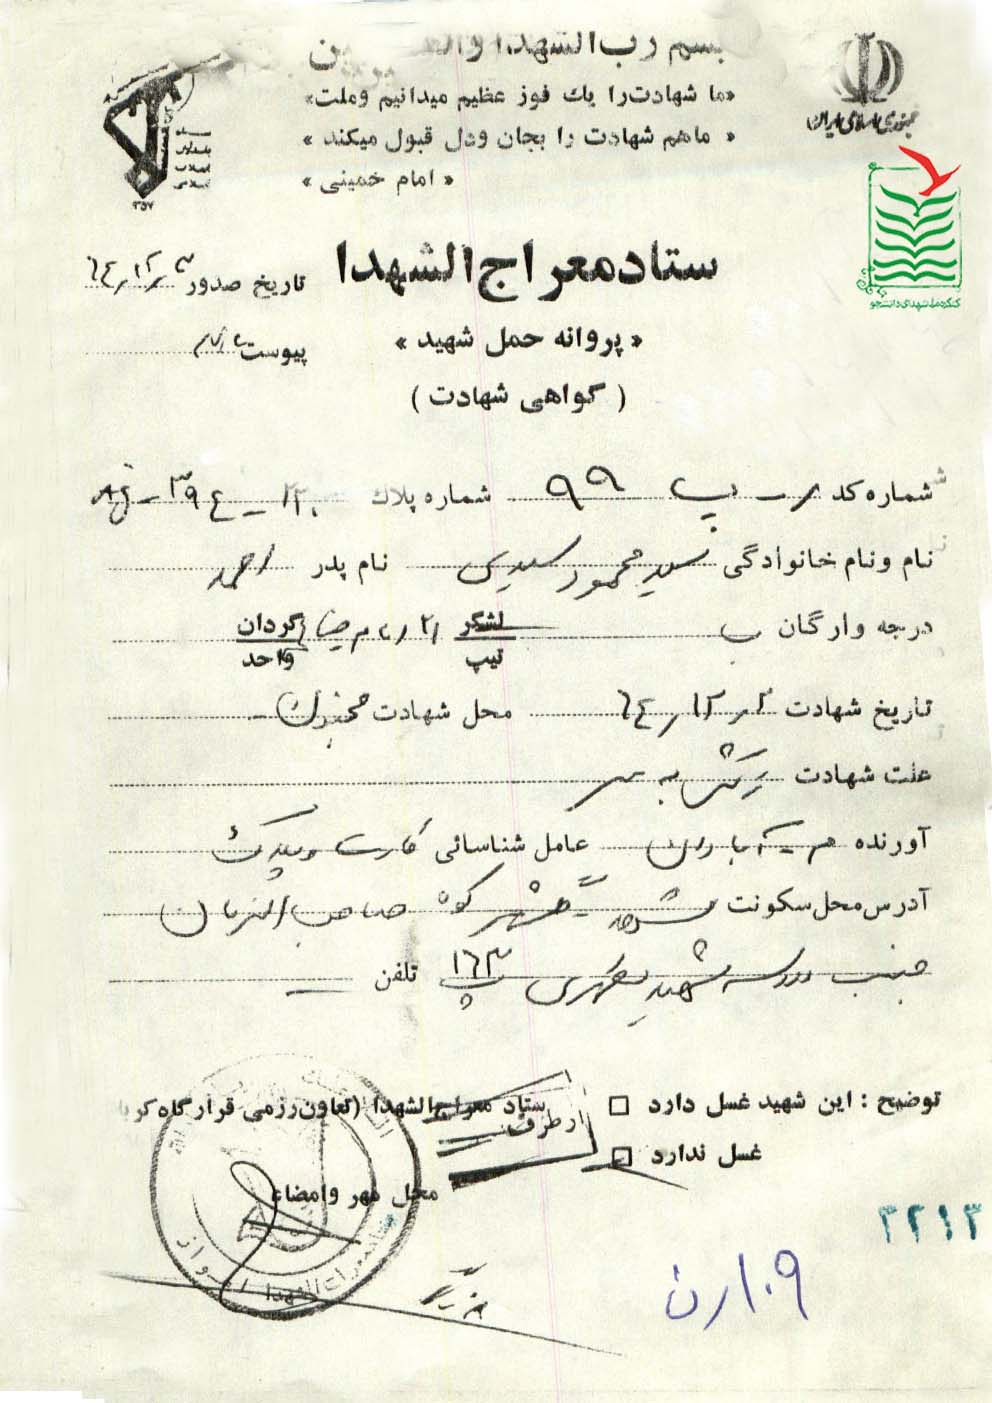 بسم رب الشهدا و
«ما شهادت را یك فوز عظیم میدانیم وملت»
« ماهم شهادت را بجان ودل قبول میکند »
« امام خمینی »
جمهوری اسلامی ایران
سپاه پاسداران انقلاب اسلامی
۱۳۵۷
کنگره ملی شهدای دانشجو
ستاد معراج الشهدا
تاریخ صدور ۳ / ۱۲ / ٦٤
« پروانه حمل شهید »
پیوست
( گواهی شهادت )
شماره کد ۹۹ شماره پلاك
نام ونام خانوادگی سید محمود سیدی نام پدر احمد
درجه وارگان ب لشگر تیپ ۲۱ امام رضا گردان واحد
تاریخ شهادت ۲ / ۱۲ / ٦٤ محل شهادت
علت شهادت ترکش به سر
آورنده عامل شناسائی کارت و پلاک
آدرس محل سکونت مشهد کوه صاحب الزمان
جنب مدرسه شهید مطهری پ ۱٦۳ تلفن ـ
توضیح : این شهید غسل دارد □
غسل ندارد □
ستاد معراج الشهدا (تعاون رزمی قرارگاه کربلا
از طرف
محل مهر وامضاء
معراج الشهدا اهواز
۳۲۱۳